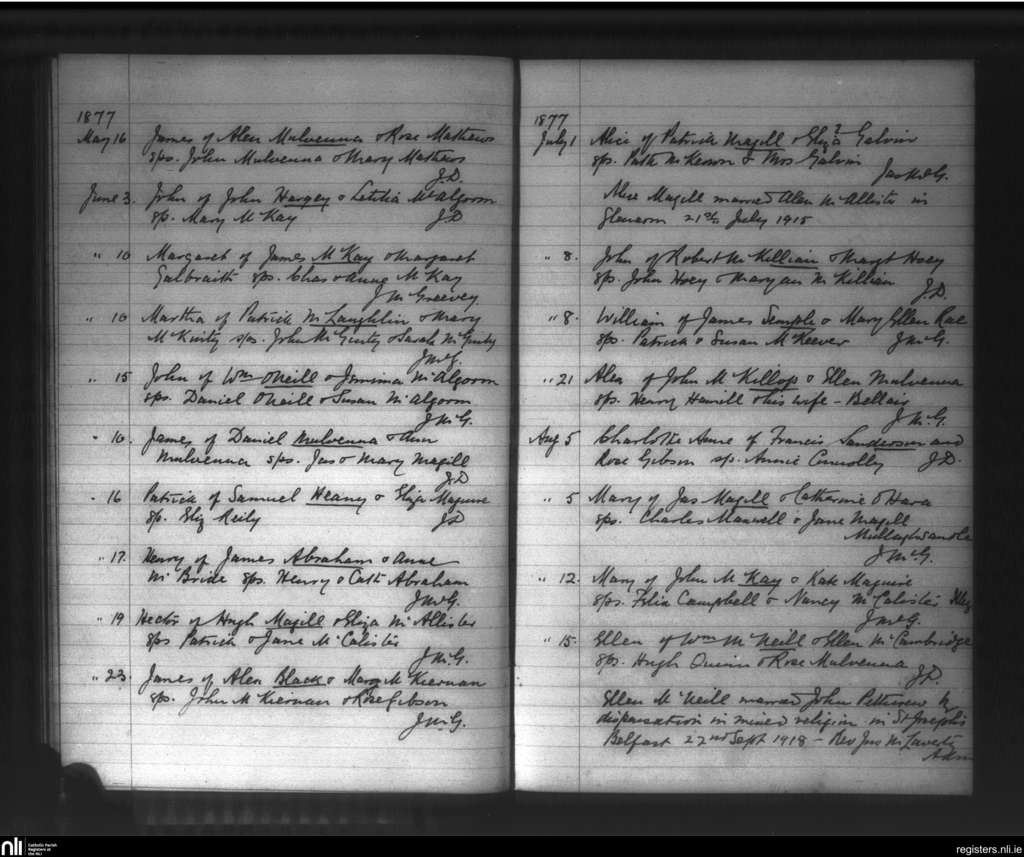 1877
May 16 James of Alen Mulvenna & Rose Mathews
sps. John Mulvenna & Mary Mathews
J.D.
June 3. John of John Harvey & Letitia McAlgorm
sp. Mary McKay J.D
" 10 Margaret of James McKay & Margaret
Galbraith sps. Chas & Anne McKay
J McGreevey
" 10 Martha of Patrick McLaughlin & Mary
McKinty sps. John McGinty & Sarah McGinty
J McG.
" 15 John of Wm O'Neill & Jemima McAlgorm
sps. Daniel O'Neill & Susan McAlgorm
J McG.
" 10. James of Daniel Mulvenna & Ann
Mulvenna sps. Jas & Mary Magill
J.D
" 16 Patrick of Samuel Heany & Eliza Maguire
sp. Eliz Reily J.D
" 17. Henry of James Abraham & Anne
McBride sps. Henry & Cath Abraham
J McG.
" 19 Hector of Hugh Magill & Eliza McAllister
sps Patrick & Jane McCalister
J McG.
" 23. James of Alen Black & Mary McKiernan
sps. John McKiernan & Rose Gibson
J McG.
1877
July 1 Alice of Patrick Magill & Eliza Galvin
sp. Patk McKeown & Thos Galvin
Jas McG.
Alice Magill married Alen McAllister in
Glenarm 21st July 1915
" 8. John of Robert McKillian & Margt Hoey
sps. John Hoey & Maryan McKillian
J.D.
" 8. William of James Semple & Mary Ellen Rae
sps. Patrick & Susan McKeever J McG.
" 21 Alen of John McKillop & Ellen Mulvenna
sps. Henry Hamill & his wife - Bellair
J McG.
Aug 5 Charlotte Anne of Francis Sanderson and
Rose Gibson sp. Annie Connolley J.D.
" 5 Mary of Jas Magill & Catherine O'Hara
sps. Charles Maxwell & Jane Magill
Mullaghsandle
J McG.
" 12. Mary of John McKay & Kate Maguire
sps. Felix Campbell & Nancy McCalister Illeg
J McG.
" 15. Ellen of Wm McNeill & Ellen McCambridge
sps. Hugh Quinn & Rose Mulvenna
J.D.
Ellen McNeill married John Petticrew by
dispensation in mixed religion in St Joseph's
Belfast 22nd Sept 1918 - Rev Jno McLaverty
Adm
nli
Catholic Parish
Registers at
the NLI
registers.nli.ie